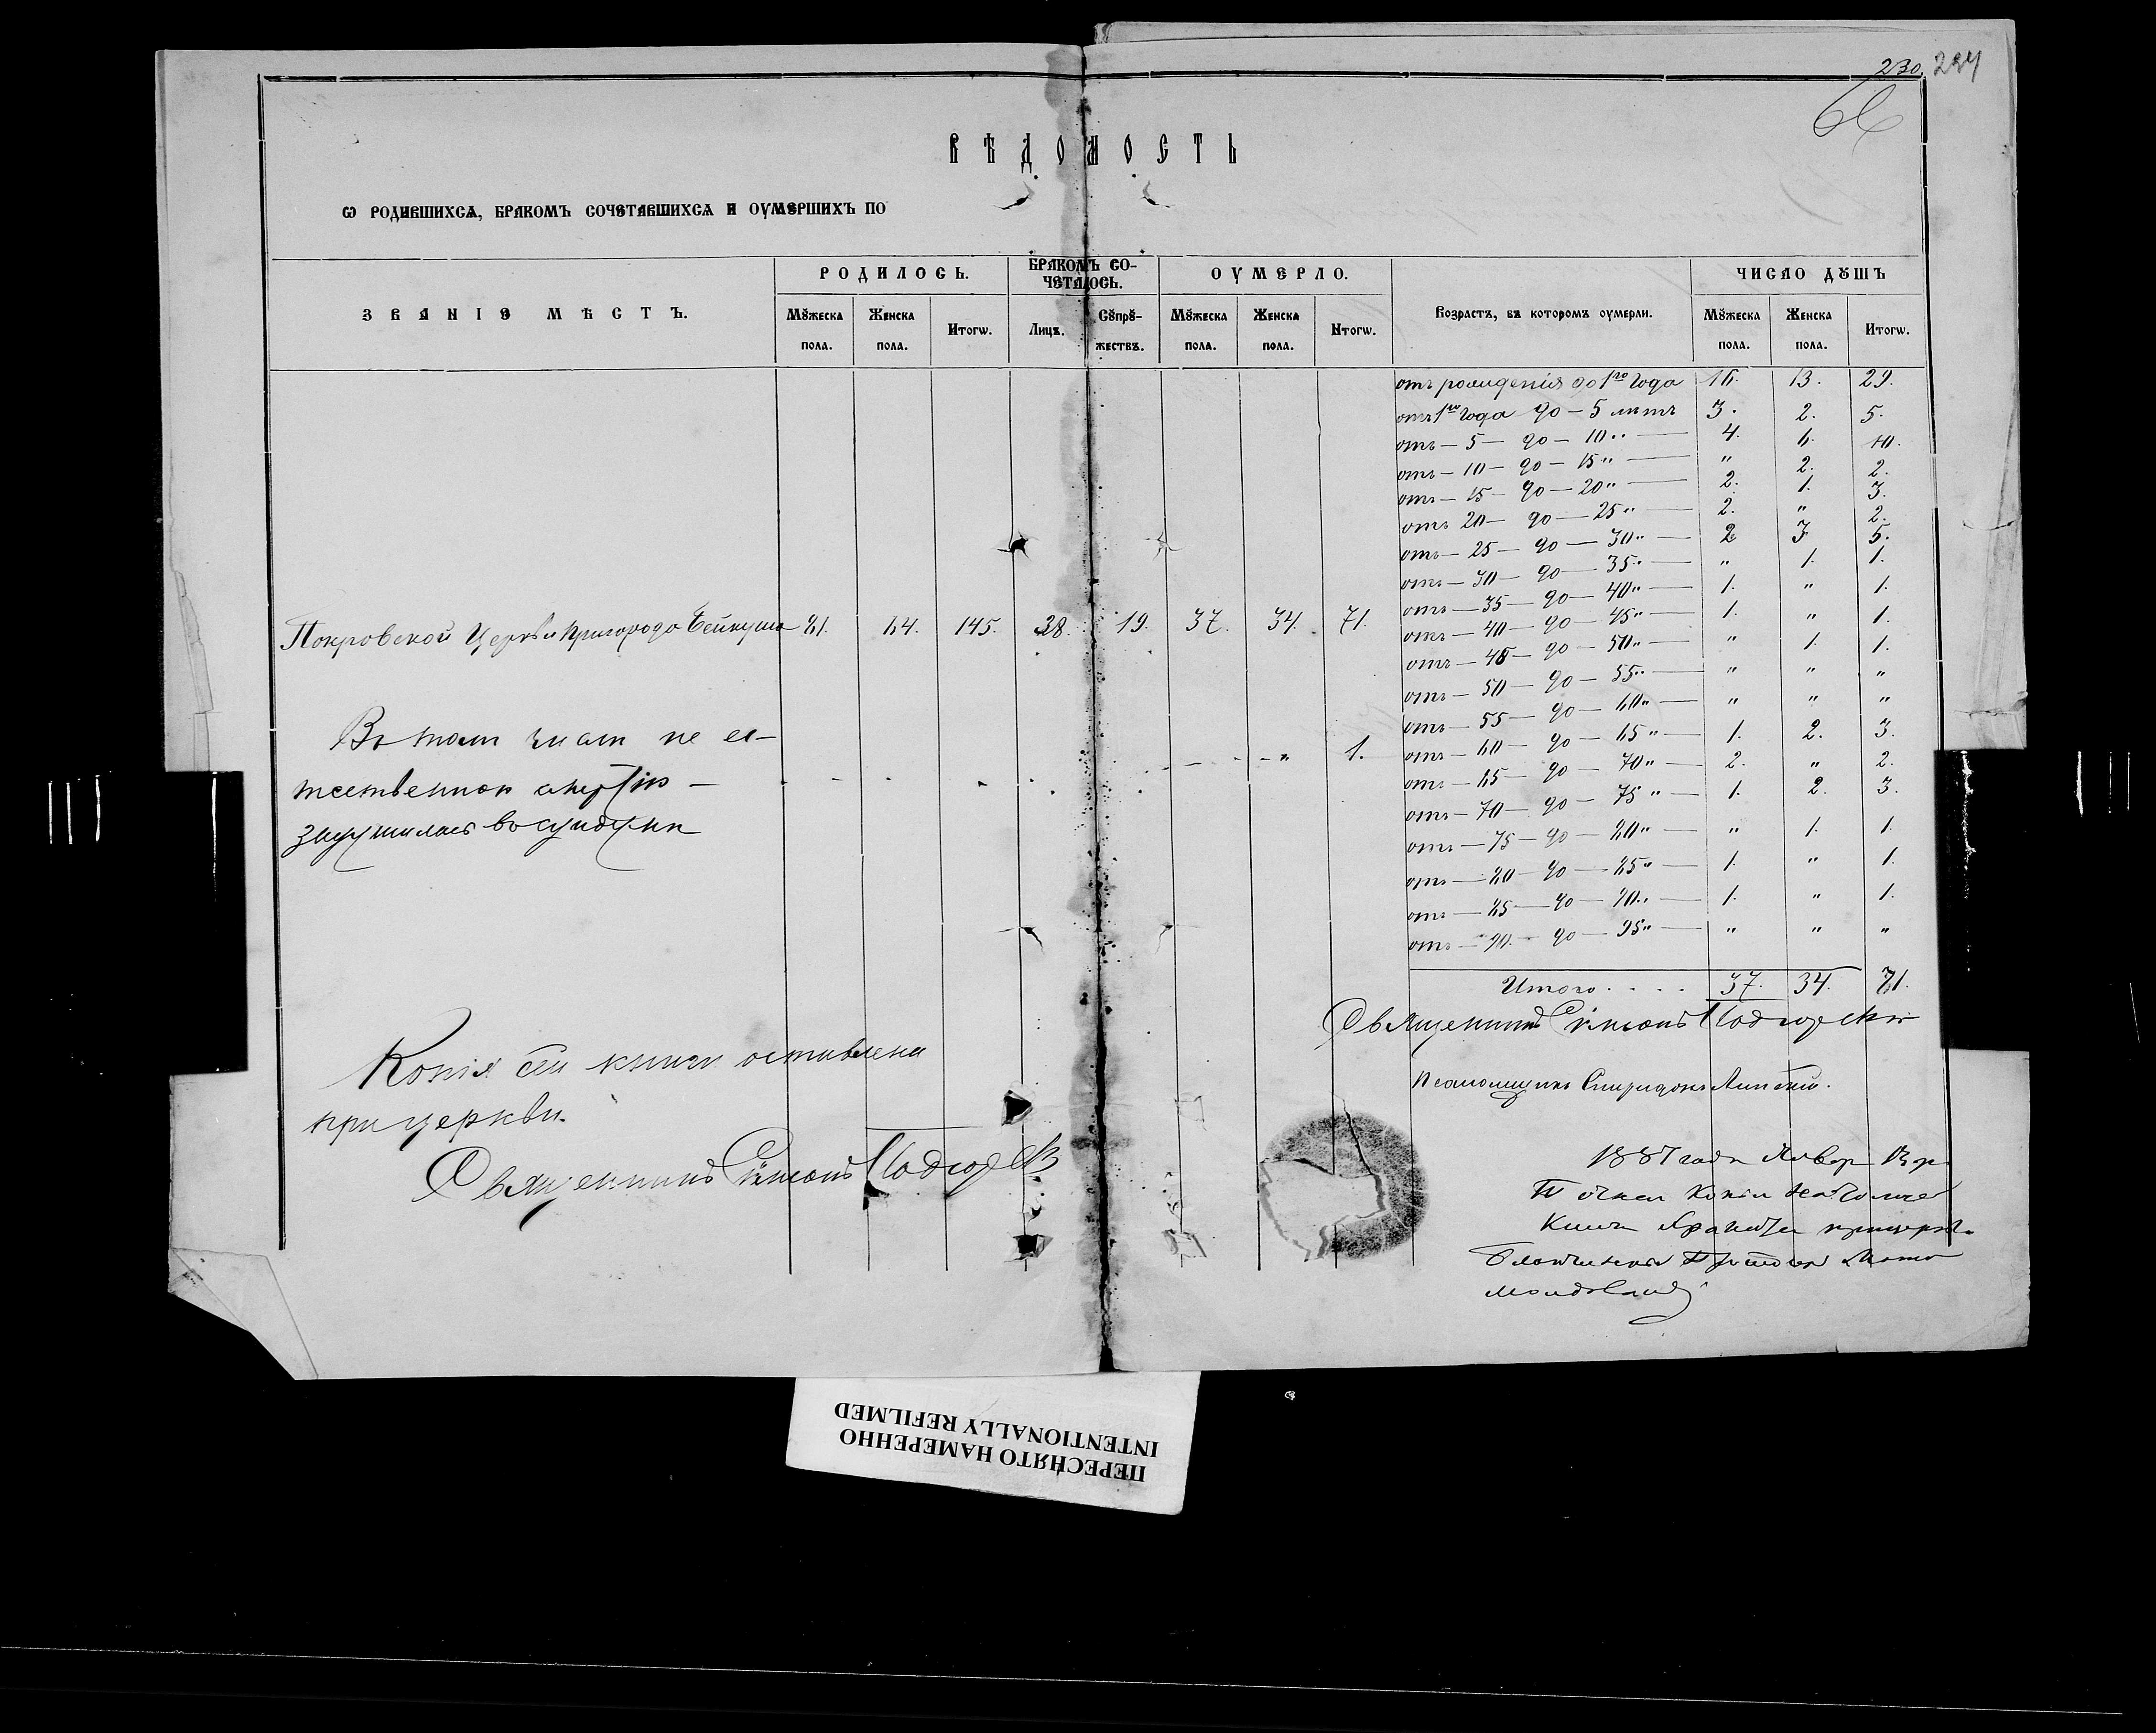 230. 234
66
ВѢДОМОСТЬ
Ѡ РОДИВШИХСѦ, БРАКОМЪ СОЧЕТАВШИХСѦ И ОУМЕРШИХЪ ПО
ЗВАНІЕ МѢСТЪ. РОДИЛОСЬ. БРАКОМЪ СО-
ЧЕТАЛОСЬ. ОУМЕРЛО. Возрастъ, въ которомъ оумерли. ЧИСЛО ДꙋШЪ
Мꙋжеска пола. Женска пола. Итогѡ. Лицъ. Сꙋпрꙋ-
жествъ. Мꙋжеска пола. Женска пола. Итогѡ. Мꙋжеска пола. Женска пола. Итогѡ.
отъ рожденія до 1го года 16. 13. 29.
отъ 1го года до — 5 лѣтъ 3. 2. 5.
отъ — 5 — до — 10 „ — 4. 6. 10.
отъ — 10 — до — 15 „ — „ 2. 2.
отъ — 15 — до — 20 „ — 2. 1. 3.
отъ 20 — до — 25 „ — 2. „ 2.
отъ — 25 — до — 30 „ — 2 3 5.
отъ — 30 — до — 35 „ — „ 1. 1.
отъ — 35 — до — 40 „ — 1. „ 1.
отъ — 40 — до — 45 „ — 1. „ 1.
отъ — 45 — до — 50 „ — „ 1. 1.
отъ — 50 — до — 55 „ — „ „ „
отъ — 55 — до — 60 „ — „ „ „
отъ — 60 — до — 65 „ — 1. 2. 3.
отъ — 65 — до — 70 „ — 2. „ 2.
отъ — 70 — до — 75 „ — 1. 2. 3.
отъ — 75 — до — 80 „ — „ 1. 1.
отъ — 80 — до — 85 „ — 1. „ 1.
отъ — 85 — до — 90 „ — 1. „ 1.
отъ — 90 — до — 95 „ — „ „ „
Итого . . . . 37. 34. 71.
Покровской Церкви Пригорода Бейкуша 81. 64. 145. 38. 19. 37. 34. 71.
Въ томъ числѣ не ес-
тественною смертію — „ 1.
задушилась въ сундукѣ
Копія сей книги оставлена
при церкви.
Священникъ Симеонъ Подгорскій
Священникъ Симеонъ Подгорскій
Псаломщикъ Спиридонъ Липскій.
1887 года Январ
Копіи
Книги
ПЕРЕСНЯТО НАМЕРЕННО
INTENTIONALLY REFILMED